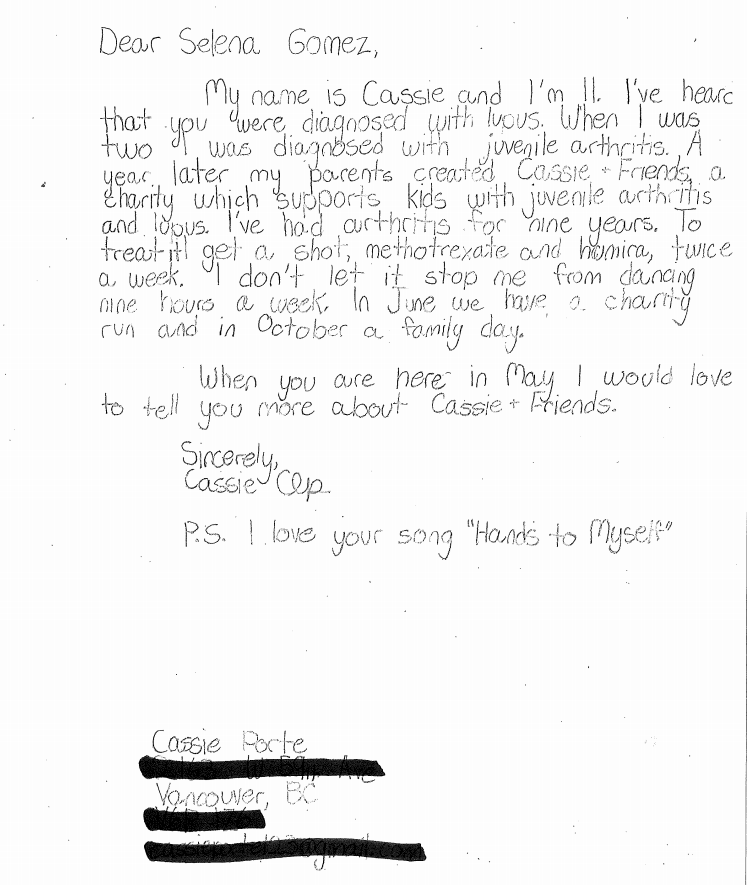 Dear Selena Gomez,
My name is Cassie and I'm 11. I've heard
that you were diagnosed with lupus. When I was
two I was diagnosed with juvenile arthritis. A
year later my parents created Cassie + Friends, a
charity which supports kids with juvenile arthritis
and lupus. I've had arthritis for nine years. To
treat it I get a shot, methotrexate and homira, twice
a week. I don't let it stop me from dancing
nine hours a week. In June we have a charity
run and in October a family day.
When you are here in May I would love
to tell you more about Cassie + Friends.
Sincerely,
Cassie
P.S. I love your song "Hands to Myself"
Cassie Porte
Vancouver, BC